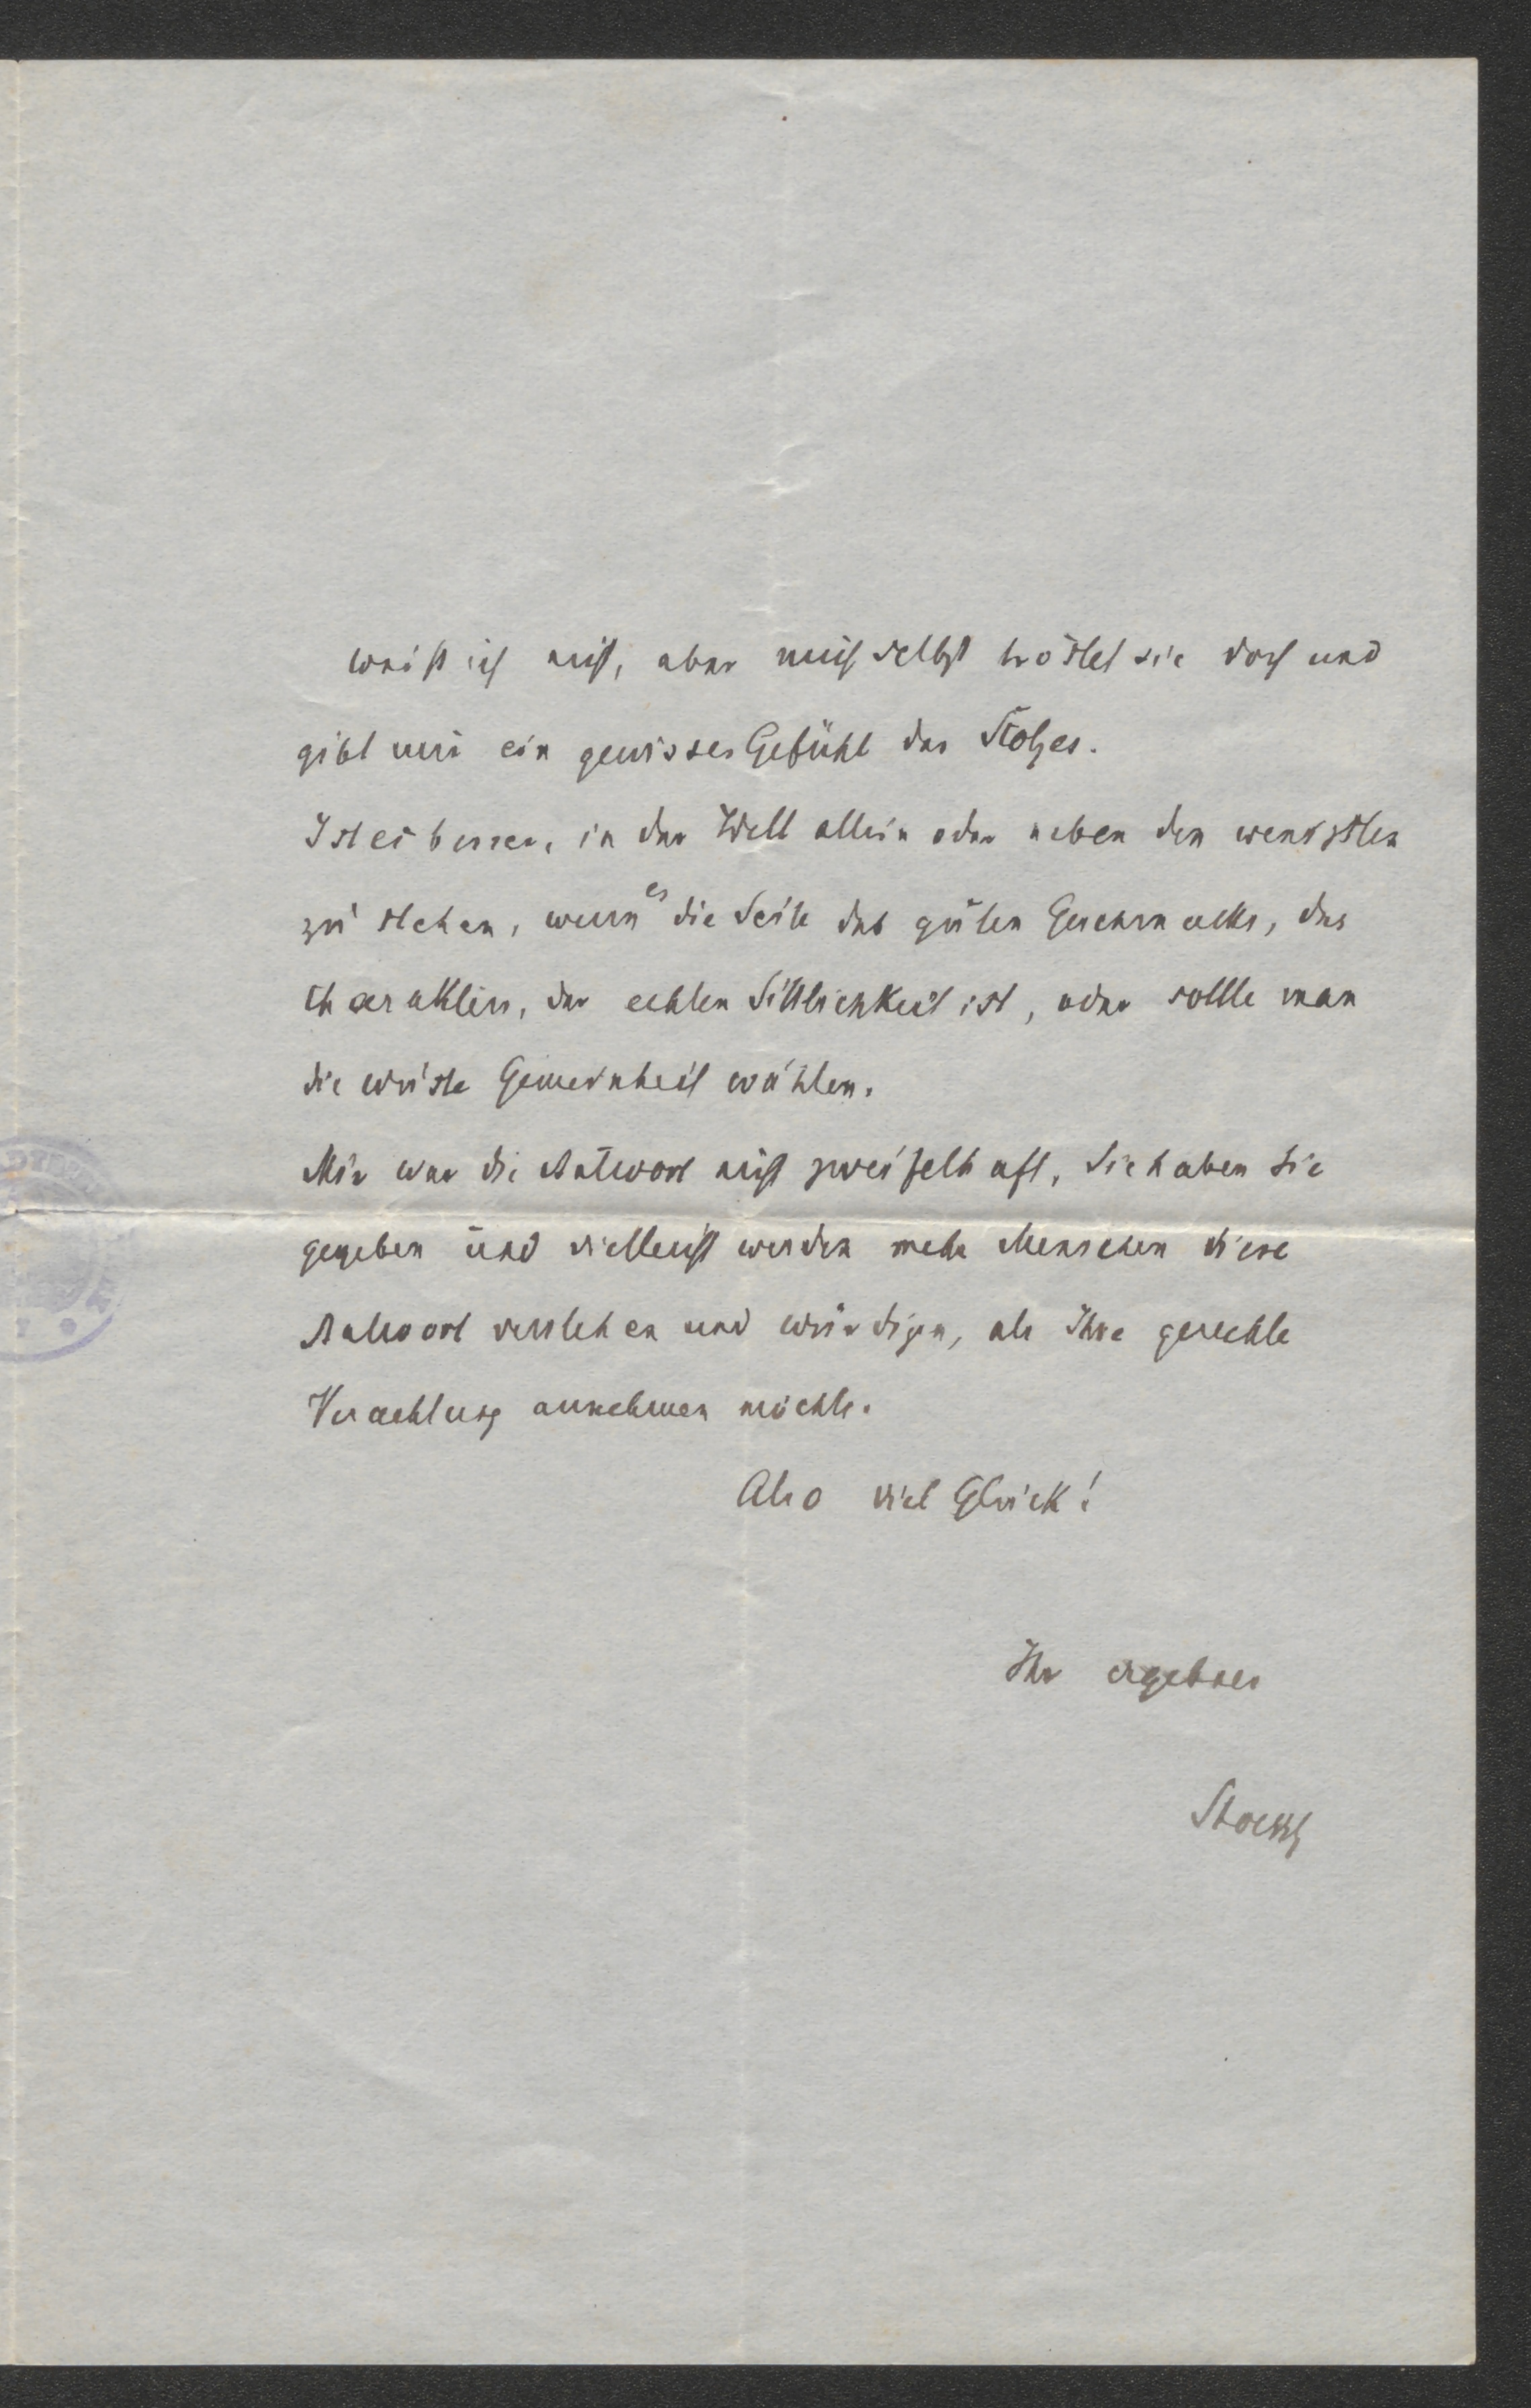 weiß ich nicht, aber mich selbst tröstet sie doch und
gibt mir ein gewisses Gefühl des Stolzes.
Ist es besser, in der Welt allein oder neben den wenigsten
zu stehen, wenn es die Seite des guten Geschmacks, des
Charakters, der echten Sittlichkeit ist, oder sollte man
die wüste Gemeinheit wählen.
Mir war die Antwort nicht zweifelhaft, Sie haben sie
gegeben und vielleicht werden mehr Menschen diese
Antwort verstehen und würdigen, als Ihre gerechte
Verachtung annehmen möchte.
Also viel Glück!
Ihr ergebner
Stoessl